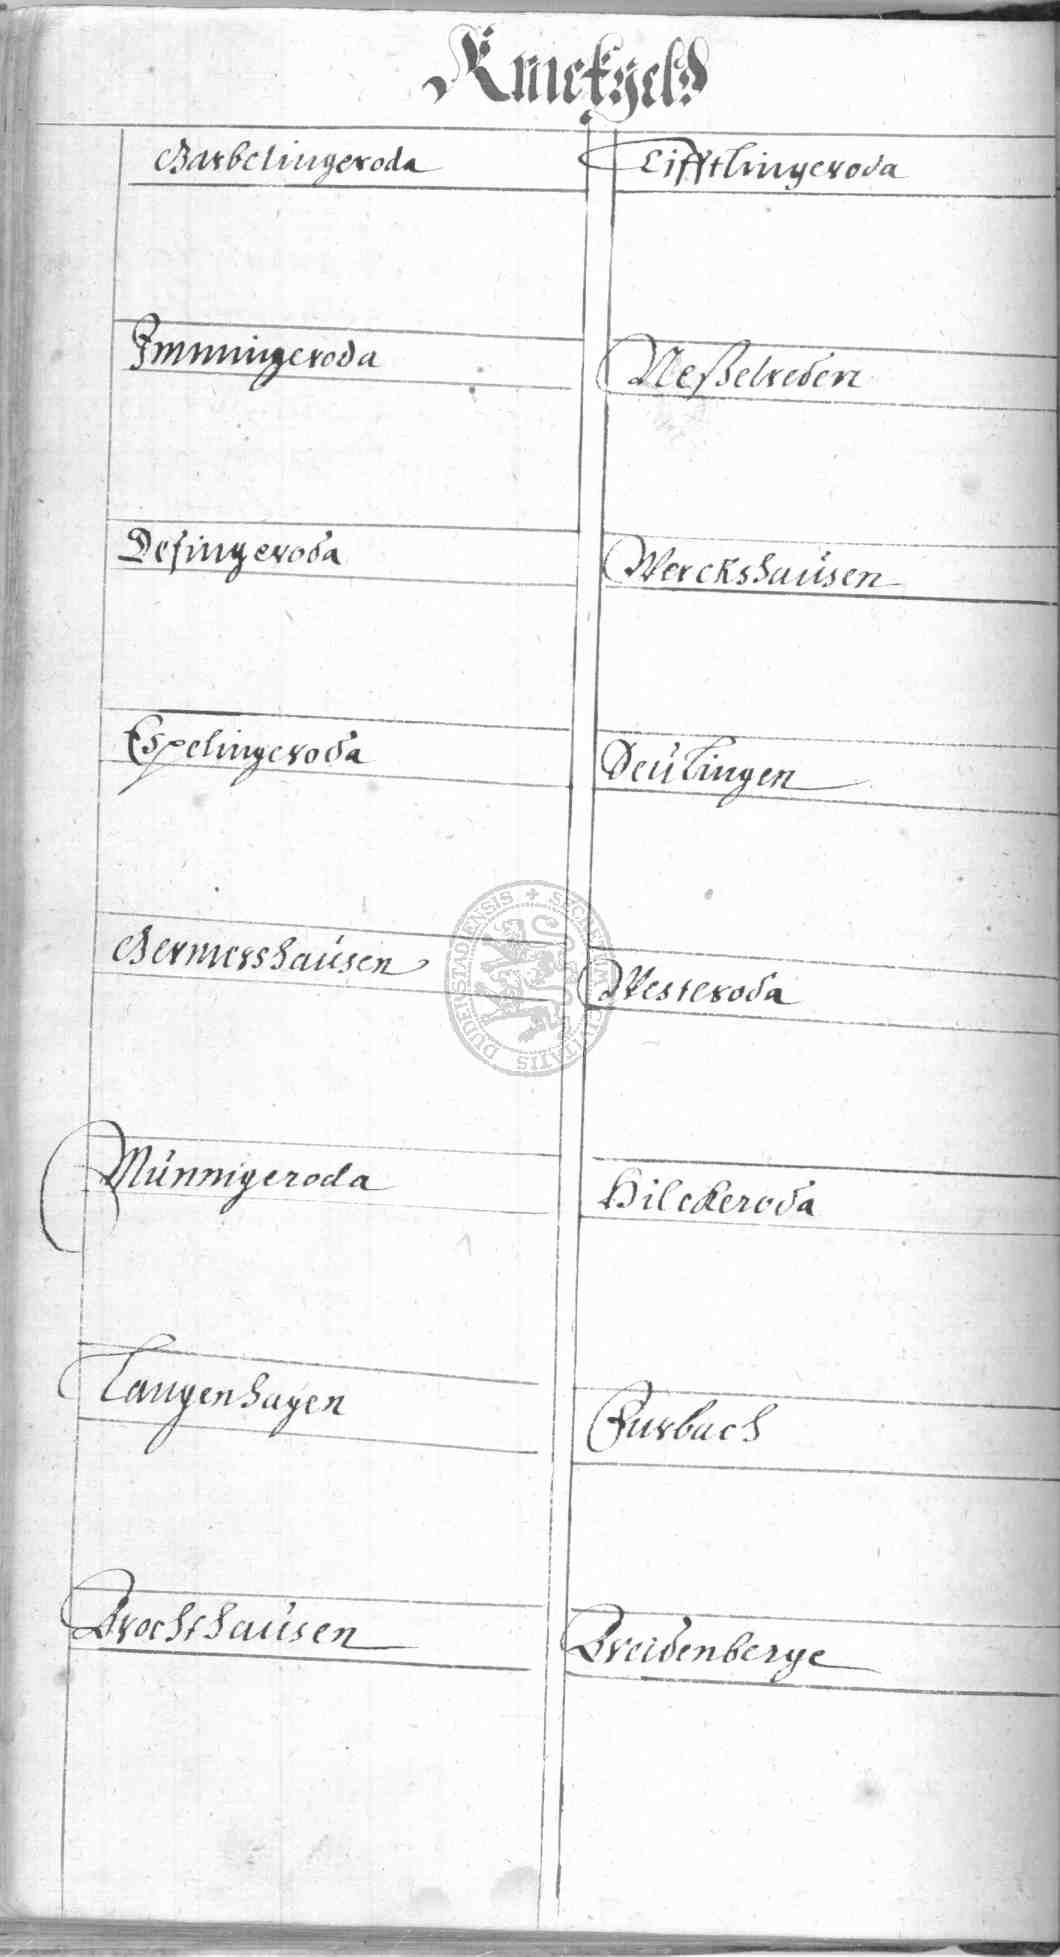 Knickgeld
Gerbelingeroda
Tifftlingeroda
Immingeroda
Neßelreden
Desingeroda
Werckshausen
Espelingeroda
Deütingen
Germershaüsen
Westeroda
Münnigeroda
Hilckeroda
Langenhagen
Furbach
Brochthaüsen
Breidenberge
SECRETUM CIVITATIS DUDERSTADIENSIS